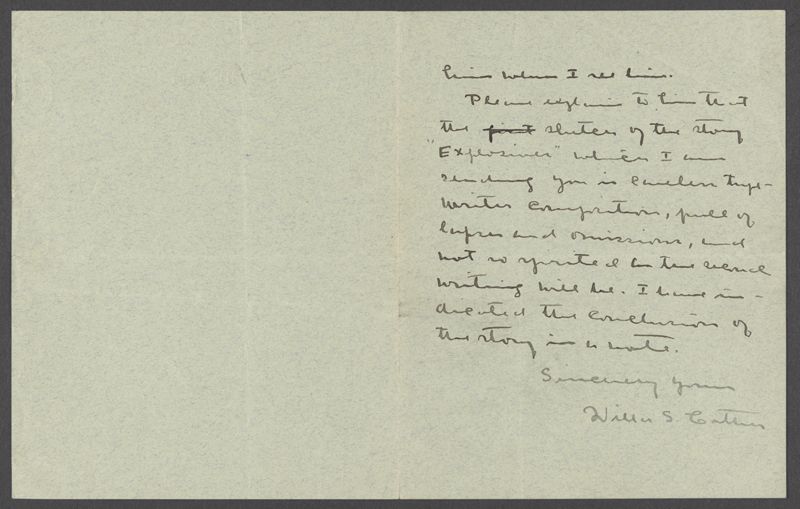 him when I see him.
Please explain to him that
the first sketch of the story
"Explosives" which I am
sending you is careless type-
writer composition, full of
lapses and omissions, and
not so spirited as the second
writing will be. I have in-
dicated the conclusion of
the story in a note.
Sincerely yours
Willa S. Cather